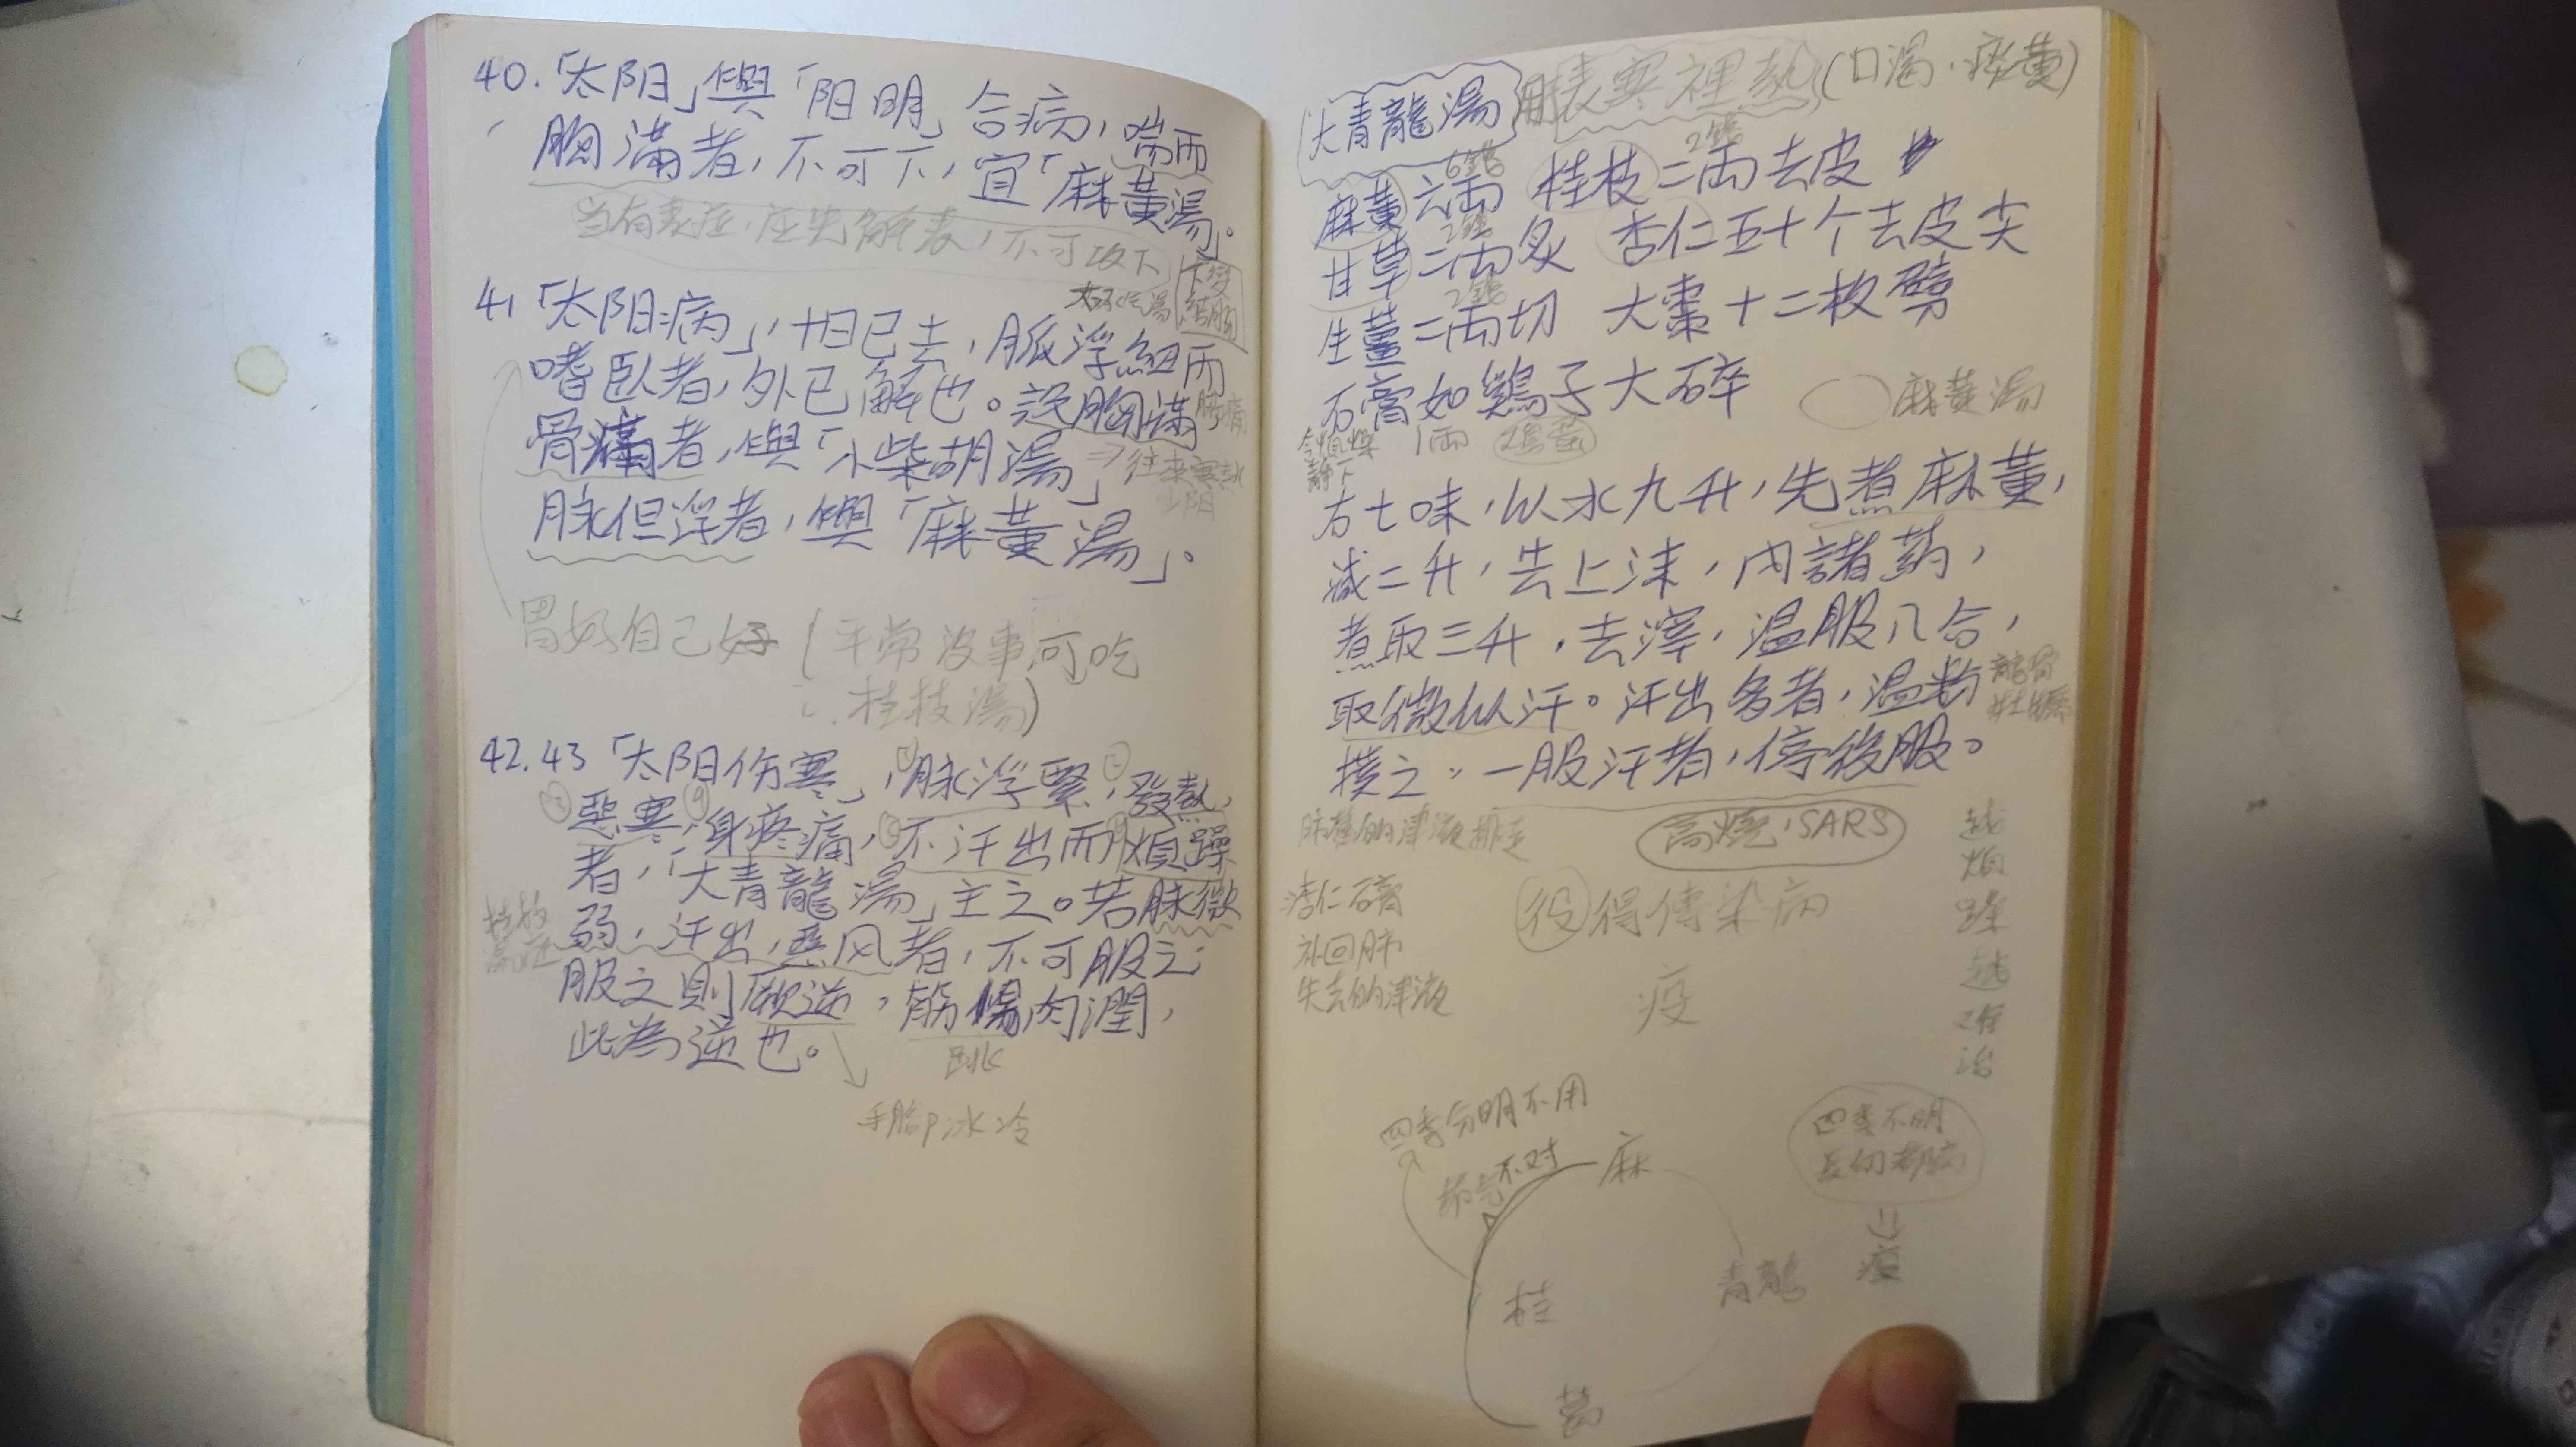 40.「太阳」與「阳明」合病，喘而
胸滿者，不可下，宜「麻黃湯」。
当有表症，应先解表，不可攻下
下变
结胸
41「太阳病」，十日已去，脈浮細而
嗜臥者，外已解也。設胸滿
骨痛者，與「小柴胡湯」⇒往來寒熱
少阳
脉但浮者，與「麻黃湯」。
胃好自己好（平常没事可吃
桂枝湯）
42.43「太阳伤寒」，①脉浮緊，②發熱，
③惡寒，④身疼痛，不汗出而煩躁
者，「大青龍湯」主之。若脉微
弱，汗出，惡风者，不可服之；
服之則厥逆，筋惕肉潤，
此為逆也。
手脚冰冷
大青龍湯 用表寒裡熱（口渴．痰黃）
6錢 2錢
麻黃六兩 桂枝二兩去皮
2錢
甘草二兩炙 杏仁五十个去皮尖
2錢
生薑二兩切 大棗十二枚劈
石膏如鷄子大碎
麻黄湯
1兩
令煩燥
靜下
右七味，以水九升，先煮麻黃，
減二升，去上沫，內諸葯，
煮取三升，去滓，温服八合，
取微似汗。汗出多者，温粉
龍骨
牡蠣
撲之。一服汗者，停後服。
高燒，SARS
杏仁石膏
补回肺
失去的津液
役得傳染病
疫
越煩躁越难治
四季分明不用
节气不对
麻
桂
青龍
葛
四季不明
⇓
疫